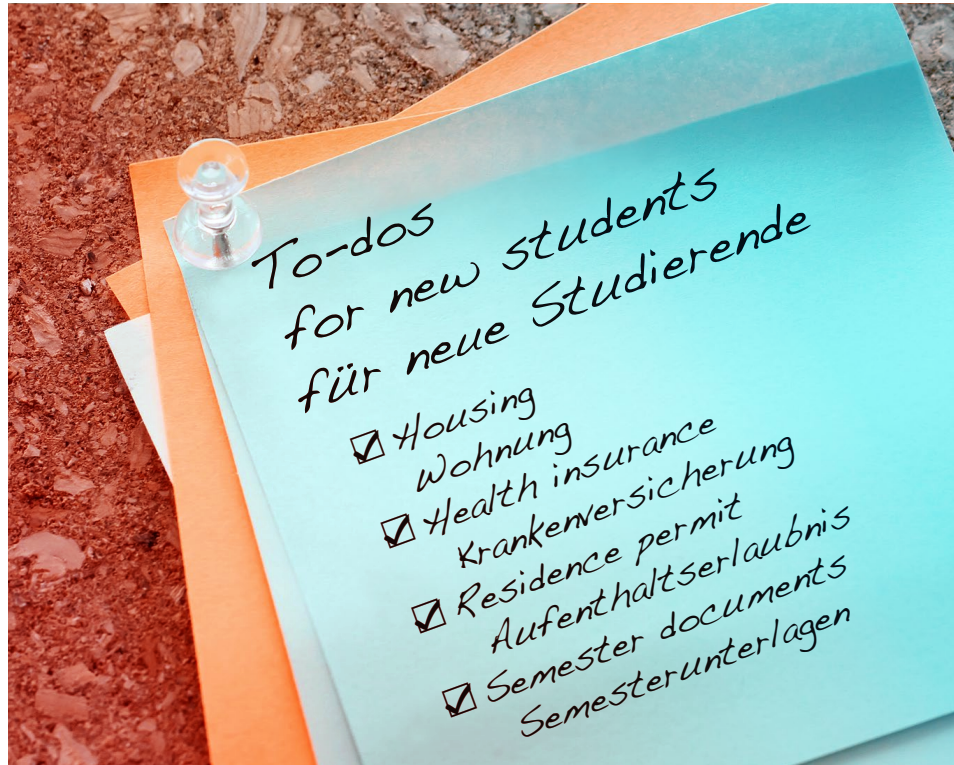 To-dos
for new students
für neue Studierende
Housing
Wohnung
Health insurance
Krankenversicherung
Residence permit
Aufenthaltserlaubnis
Semester documents
Semesterunterlagen